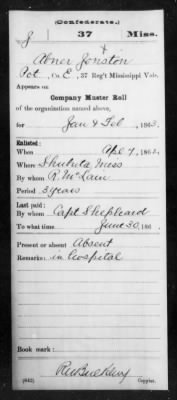 (Confederate.)
J 37 Miss.
Abner Jonston
Pvt, Co. E, 37 Reg't Mississippi Vols.
Appears on
Company Muster Roll
of the organization named above,
for Jan & Feb, 1863.
Enlisted:
When Apl 7, 1862.
Where Shubuta Miss
By whom R. McLain
Period 3 years
Last paid:
By whom Capt Shepleard
To what time June 30, 186
Present or absent Absent
Remarks: in hospital
Book mark:
(642) Copyist.